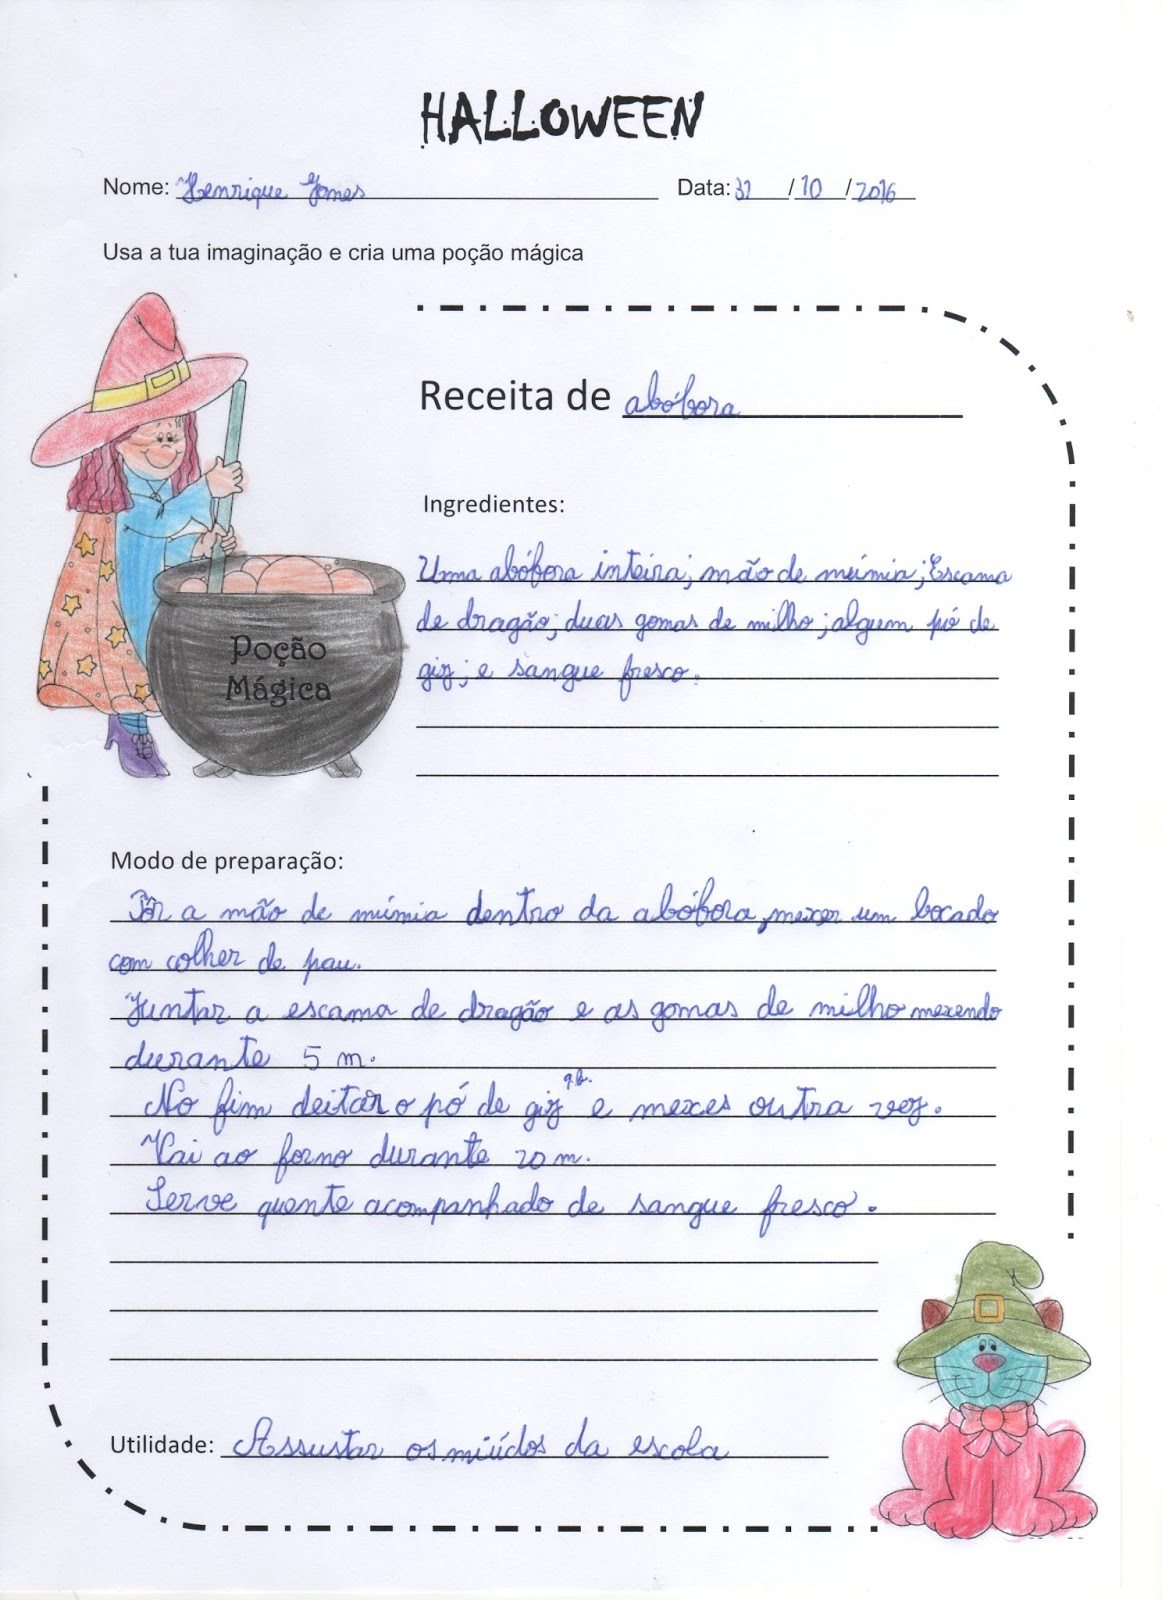 HALLOWEEN
Nome: Henrique Gomes Data: 31 / 10 / 2016
Usa a tua imaginação e cria uma poção mágica
Receita de abóbora
Ingredientes:
Uma abóbora inteira; mão de múmia; Escama
de dragão; duas gomas de milho; algum pó de
giz; e sangue fresco.
Poção
Mágica
Modo de preparação:
Pôr a mão de múmia dentro da abóbora, mexer um bocado
com colher de pau.
Juntar a escama de dragão e as gomas de milho mexendo
durante 5 m.
No fim deitar o pó de giz q.b. e mexes outra vez.
Vai ao forno durante 20 m.
Serve quente acompanhado de sangue fresco.
Utilidade: Assustar os miúdos da escola